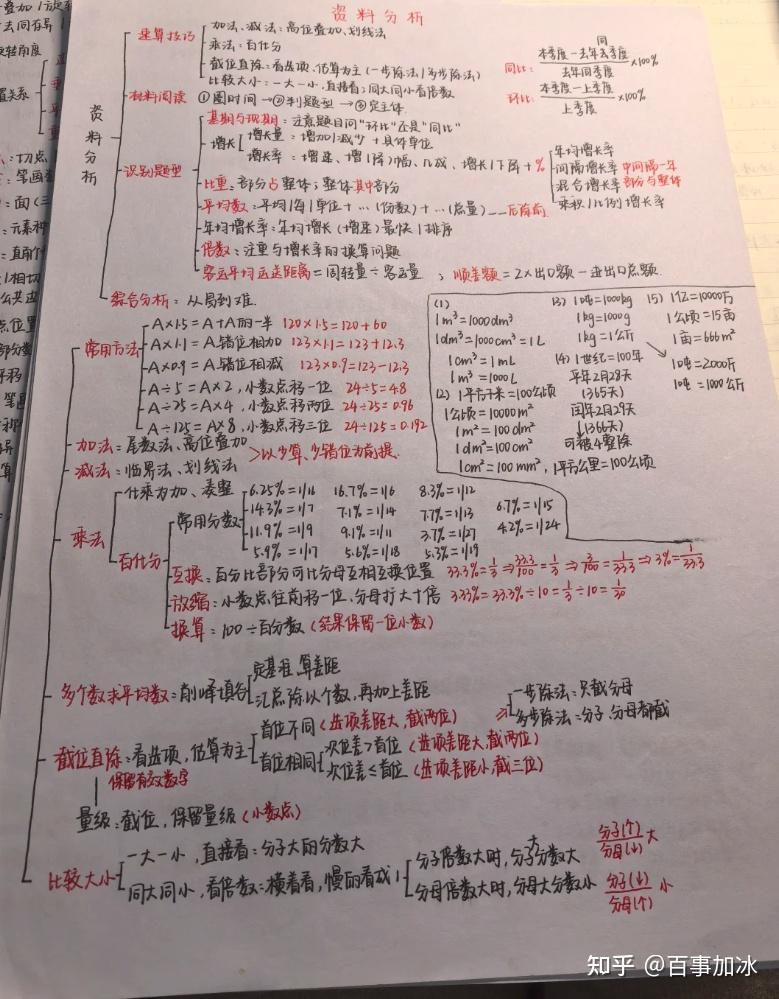 资料分析
速算技巧
加法、减法：高位叠加、划线法
乘法：百化分
截位直除：看选项、估算为主（一步除法/多步除法）
比较大小：一大一小，直接看；同大同小看倍数
同比：同 本季度-去年去季度/去年同季度 ×100%
环比：本季度-上季度/上季度 ×100%
材料阅读 ①圈时间→②判题型→③定主体
资料分析
识别题型
基期与现期：注意题目问"环比"还是"同比"
增长
增长量：增加/减少+具体单位
增长率：增速、增(降)幅、几成、增长/下降+%
年均增长率
间隔增长率 中间隔一年
混合增长率 部分与整体
乘积/比例增长率
比重：部分占整体；整体其中部分
平均数：平均/每/单位+…(份数)+…(总量) 后除前
年均增长率：年均增长(增速)最快/排序
倍数：注重与增长率的换算问题
客运平均运送距离=周转量÷客运量；顺差额=2×出口额-进出口总额
综合分析：从易到难.
常用方法
A×1.5=A+A的一半 120×1.5=120+60
A×1.1=A错位相加 123×1.1=123+12.3
A×0.9=A错位相减 123×0.9=123-12.3
A÷5=A×2，小数点移一位 24÷5=4.8
A÷25=A×4，小数点移两位 24÷25=0.96
A÷125=A×8，小数点移三位 24÷125=0.192
(1)
1m³=1000dm³
1dm³=1000cm³=1L
1cm³=1mL
1m³=1000L
(2) 1平方千米=100公顷
1公顷=10000m²
1m²=100dm²
1dm²=100cm²
1cm²=100mm²，1平方公里=100公顷
(3) 1吨=1000kg
1kg=1000g
1kg=1公斤
(4) 1世纪=100年
平年2月28天
(365天)
闰年2月29天
(366天)
可被4整除
(5) 1亿=10000万
1公顷=15亩
1亩=666m²
1吨=2000斤
1吨=1000公斤
加法：尾数法、高位叠加
减法：临界法、划线法
>以少算、少错位为前提.
乘法
化乘为加、凑整
百化分
常用分数
6.25%=1/16 16.7%=1/6 8.3%=1/12
14.3%=1/7 7.1%=1/14 7.7%=1/13 6.7%=1/15
11.9%=1/9 9.1%=1/11 3.7%=1/27 4.2%=1/24
5.9%=1/17 5.6%=1/18 5.3%=1/19
互换：百分比部分可比分母互相互换位置 33.3%=1/3⇒33.3/100=1/3⇒3/100=1/33.3⇒3%=1/33.3
放缩：小数点往前移一位，分母扩大十倍 3.33%=33.3%÷10=1/3÷10=1/30
换算：100÷百分数(结果保留一位小数)
多个数求平均数：削峰填谷
定基准，算差距
汇总除以个数，再加上差距
截位直除：看选项，估算为主
保留有效数字
首位不同(选项差距大，截两位)
首位相同
次位差>首位(选项差距大，截两位)
次位差≤首位(选项差距小，截三位)
⇒
一步除法：只截分母
多步除法：分子、分母都截
量级：截位，保留量级(小数点)
比较大小
一大一小，直接看：分子大的分数大
同大同小，看倍数：横着看，慢的看成1
分子倍数大时，分子大分数大 分子(↑)/分母(↓) 大
分母倍数大时，分母大分数小 分子(↓)/分母(↑) 小
知乎 @百事加冰